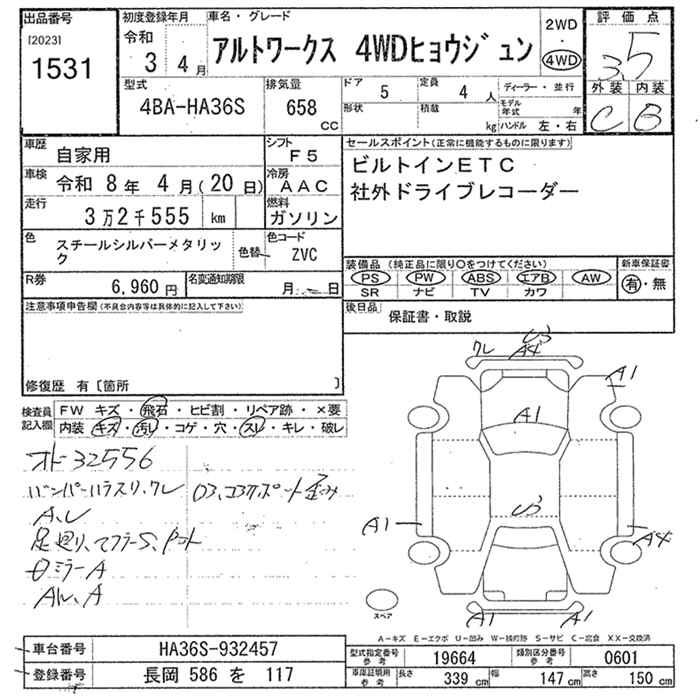 出品番号
[2023]
1531
初度登録年月
令和
3 4月
車名・グレード
アルトワークス 4WDヒョウジュン
2WD
・
4WD
評価点
3.5
外装 内装
C B
型式
4BA-HA36S
排気量
658
cc
ドア
5
形状
定員
4 人
積載
kg
ディーラー・並行
モデル年式 年
ハンドル 左・右
車歴
自家用
シフト
F5
車検
令和 8年 4月(20日)
冷房
AAC
走行
3万2千555 km
燃料
ガソリン
色
スチールシルバーメタリック
色替
色コード
ZVC
R券
6,960円
名変通知期限
月 日
セールスポイント(正常に機能するものに限ります)
ビルトインETC
社外ドライブレコーダー
装備品(純正品に限り○をつけてください)
PS PW ABS エアB AW
SR ナビ TV カワ
新車保証書
有・無
後日品
保証書・取説
注意事項申告欄(不具合内容等は具体的に記入して下さい)
修復歴 有〔箇所 〕
検査員記入欄
FW キズ・飛石・ヒビ割・リペア跡・×要
内装 キズ・汚レ・コゲ・穴・スレ・キレ・破レ
オドー32556
バンパーハラスリ、ワレ
A、U
足廻リ、マフラーS、
ミラーA
AW、A
ワレ
A4
A1
A1
A1
A4
A1
A1
スペア
A-キズ E-エクボ U-凹み W-補修跡 S-サビ C-腐食 XX-交換済
車台番号
HA36S-932457
登録番号
長岡 586 を 117
型式指定番号
参考
19664
類別区分番号
参考
0601
車庫証明用
参考
長さ
339 cm
幅
147 cm
高さ
150 cm